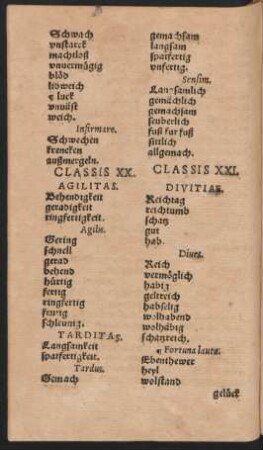 Schwach
vnstarck
machtloß
vnuermügig
blöd
lidweich
¶ luck
vnuäst
weich.
Infirmare.
Schwechen
krencken
außmergeln.
CLASSIS XX.
AGILITAS.
Behendigkeit
geradigkeit
ringfertigkeit.
Agilis.
Gering
schnell
gerad
behend
hürtig
fertig
ringfertig
fewrig
schleunig.
TARDITAS.
Langsamkeit
spatfertigkeit.
Tardus.
Gemach
gemachsam
langsam
spatfertig
vnfertig.
Sensim.
Langsamlich
gemächlich
gemachsam
seuberlich
fuß fur fuß
sittlich
allgemach.
CLASSIS XXI.
DIVITIAE.
Reichtag
reichtumb
schatz
gut
hab.
Diues.
Reich
vermöglich
habig
geltreich
habselig
wolhabend
wolhebig
schatzreich.
¶ Fortuna lauta.
Ebenthewer
heyl
wolstand
gelück